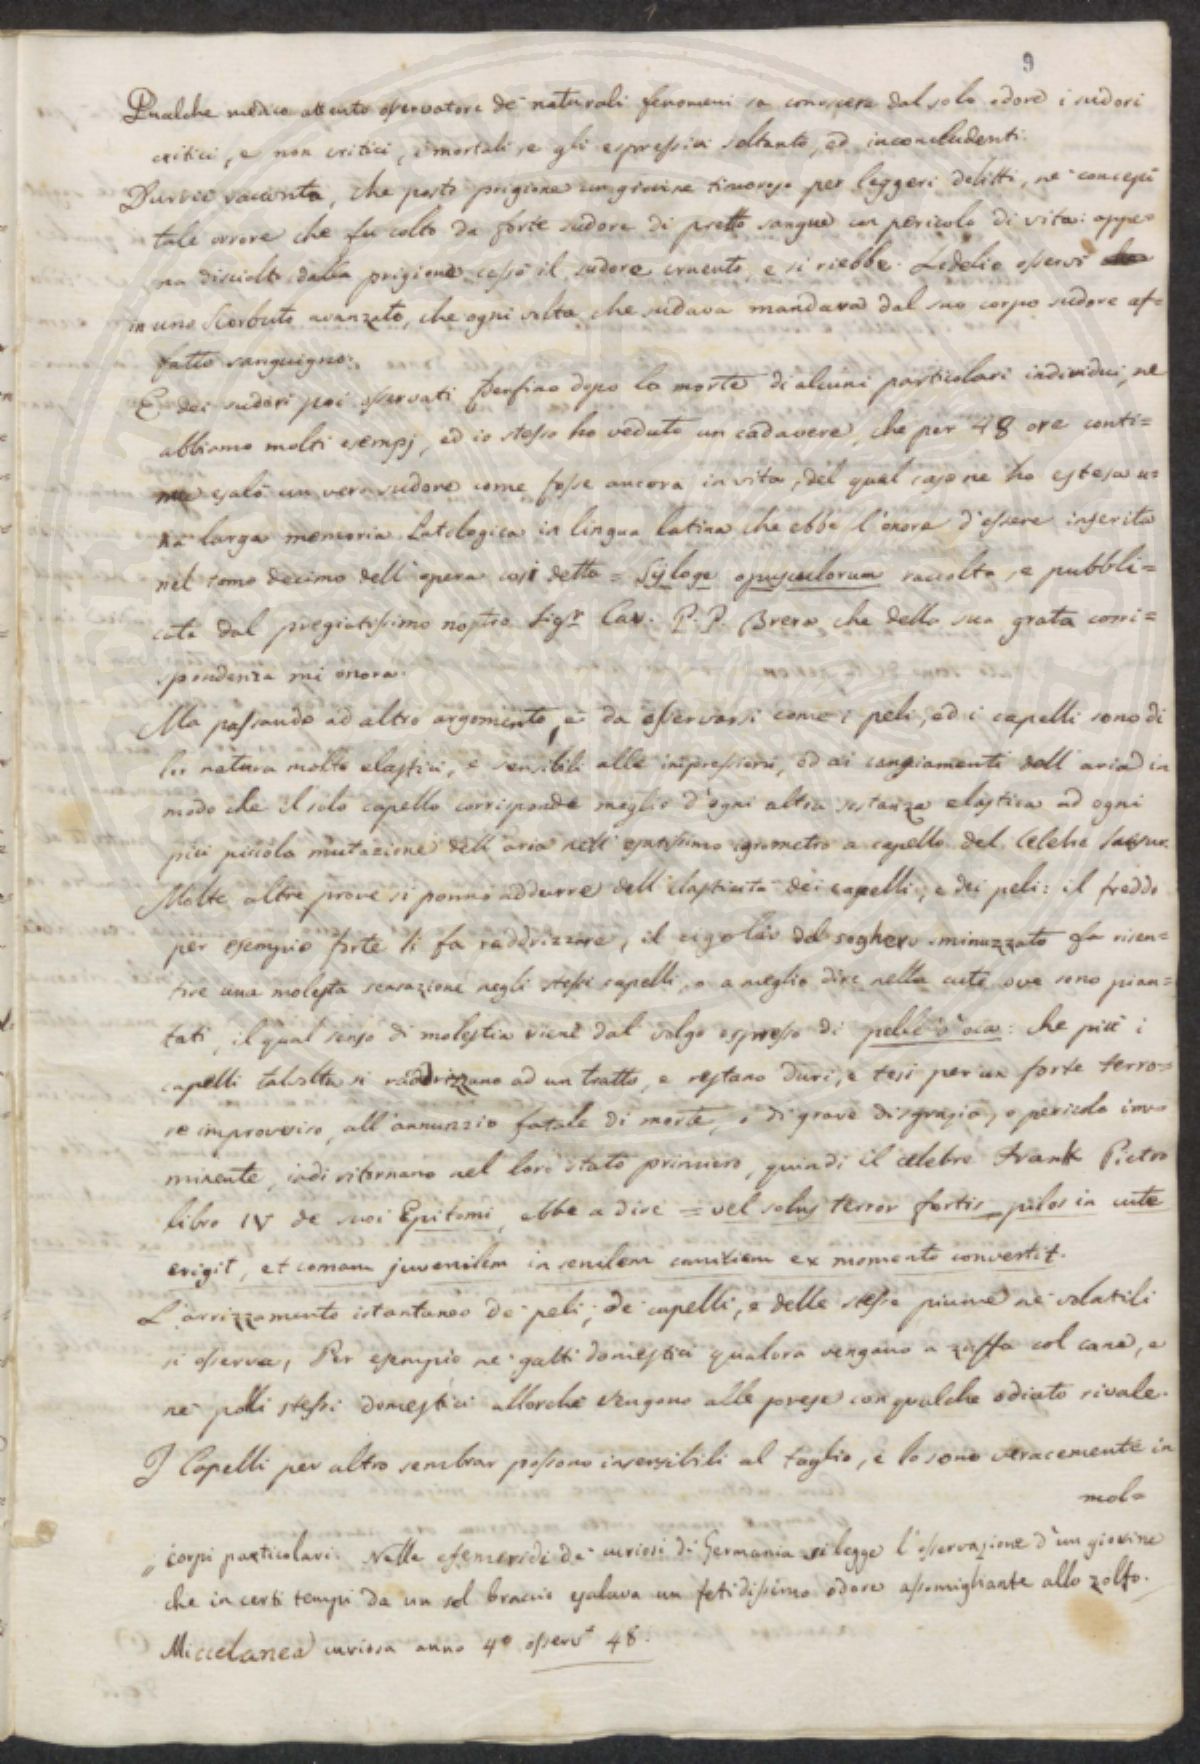 9
Qualche medico attento osservatore de' naturali fenomeni sa conoscere dal solo odore i sudori
critici, e non critici, i mortali, e gli espressivi soltanto, ed inconcludenti.
racconta, che posto prigione un giovine timoroso per leggeri delitti, ne concepì
tale orrore che fu colto da forte sudore di pretto sangue con pericolo di vita: appe=
na disciolto dalla prigione cessò il sudore cruento, e si riebbe. Ledelio osservò
in uno Scorbuto avanzato, che ogni volta che sudava mandava dal suo corpo sudore af=
fatto sanguigno.
E dei sudori poi osservati perfino dopo la morte di alcuni particolari individui, ne
abbiamo molti esempj, ed io stesso ho veduto un cadavere, che per 48 ore conti=
nue esalò un vero sudore come fosse ancora in vita, del qual caso ne ho estesa u=
na larga memoria Patologica in lingua latina che ebbe l'onore d'essere inserita
nel tomo decimo dell'opera così detta = Syloge opusculorum raccolta, e pubbli=
cata dal pregiatissimo nostro Sigr. Cav. P. P. Brera che della sua grata corri=
spondenza mi onora.
Ma passando ad altro argomento, è da osservarsi come i peli, ed i capelli sono di
lor natura molto elastici, e sensibili alle impressioni, ed ai cangiamenti dell'aria in
modo che il solo capello corrisponde meglio d'ogni altra sostanza elastica ad ogni
più piccola mutazione dell'aria nell' esattissimo igrometro a capello del Celebre
Molte altre prove si ponno addurre dell'elasticità dei capelli, e dei peli: il freddo
per esempio forte li fa raddrizzare, il cigolio del soghero minuzzato fa risen=
tire una molesta sensazione negli stessi capelli, o a meglio dire nella cute ove sono pian=
tati, il qual senso di molestia viene dal volgo espresso di pelle d'oca: che più i
capelli talvolta si raddrizzano ad un tratto, e restano duri, e tesi per un forte terro=
re improvviso, all'annunzio fatale di morte, o di grave disgrazia, o pericolo im=
minente, indi ritornano nel loro stato primiero, quindi il celebre Frank Pietro
libro IV de suoi Epitomi, ebbe a dire = vel solus terror fortis pilos in cute
erigit, et comam juvenilem in senilem canitiem ex momento convertit.
L'arrizzamento istantaneo de' peli, de' capelli, e delle stesse piume ne' volatili
si osserva, Per esempio ne' gatti domestici qualora vengano a zuffa col cane, e
ne' polli stessi domestici allorché vengono alle prese con qualche odiato rivale.
I Capelli per altro sembrar possono insensibili al taglio, e lo sono veracemente in
mol=
corpi particolari. Nelle efemeridi de' curiosi di Germania si legge l'osservazione d'un giovine
che in certi tempi da un sol braccio esalava un fetidissimo odore assomigliante allo zolfo.
Miccelanea curiosa anno 4º osserv.ª 48.